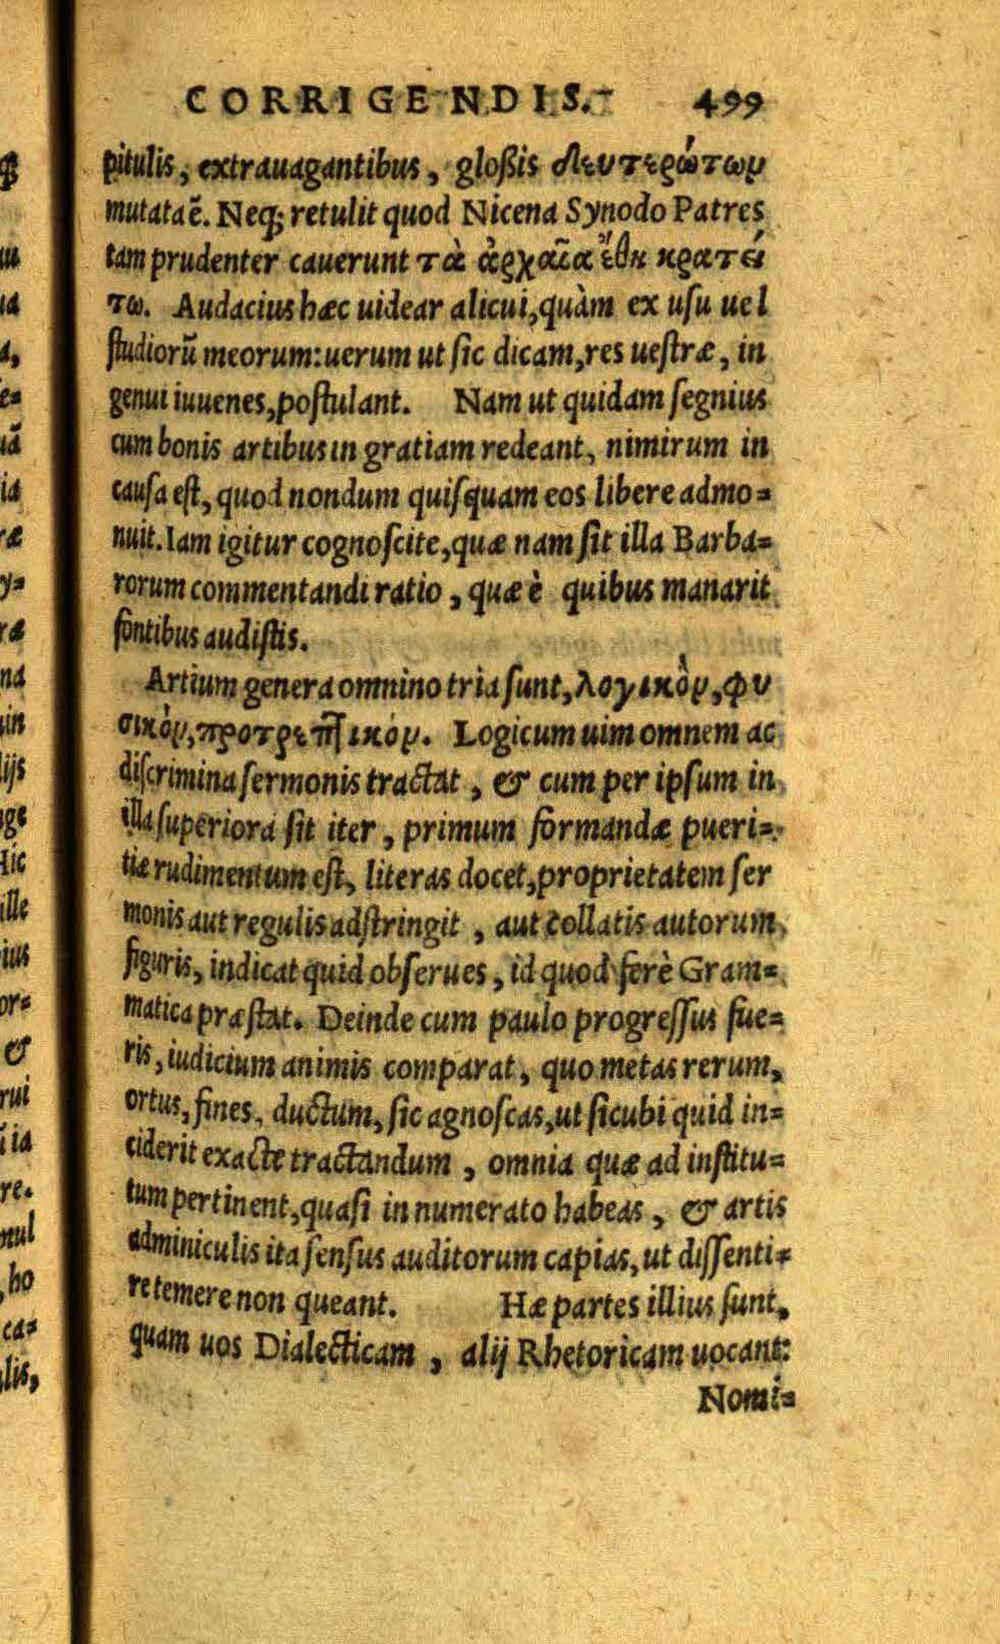 CORRIGENDIS. 499
pitulis, extrauagantibus, gloßis δευτερώτωρ
mutata ē. Neq; retulit quod Nicena Synodo Patres
tam prudenter cauerunt τὰ ἀρχαῖα ἔθη κρατεί
τω. Audacius hæc uidear alicui, quàm ex uſu uel
ſtudiorū meorum: uerum ut ſic dicam, res ueſtræ, in
genui iuuenes, poſtulant. Nam ut quidam ſegnius
cum bonis artibus in gratiam redeant, nimirum in
cauſa eſt, quod nondum quiſquam eos libere admo=
nuit. Iam igitur cognoſcite, quæ nam ſit illa Barba=
rorum commentandi ratio, quæ è quibus manarit
fontibus audiſtis.
Artium genera omnino tria ſunt, λογικὸν, φυ
σικὸν, προτρεπτικόν. Logicum uim omnem ac
diſcrimina ſermonis tractat, & cum per ipſum in
illa ſuperiora ſit iter, primum formandæ pueri=
tiæ rudimentum eſt, literas docet, proprietatem ſer
monis aut regulis adſtringit, aut collatis autorum
figuris, indicat quid obſerues, id quod ferè Gram=
matica præſtat. Deinde cum paulo progreſſus fue=
ris, iudicium animis comparat, quo metas rerum,
ortus, fines, ductum, ſic agnoſcas, ut ſicubi quid in=
ciderit exacte tractandum, omnia quæ ad inſtitu=
tum pertinent, quaſi in numerato habeas, & artis
adminiculis ita ſenſus auditorum capias, ut diſſenti=
re temere non queant. Hæ partes illius ſunt,
quam uos Dialecticam, alij Rhetoricam uocant:
Nomi=